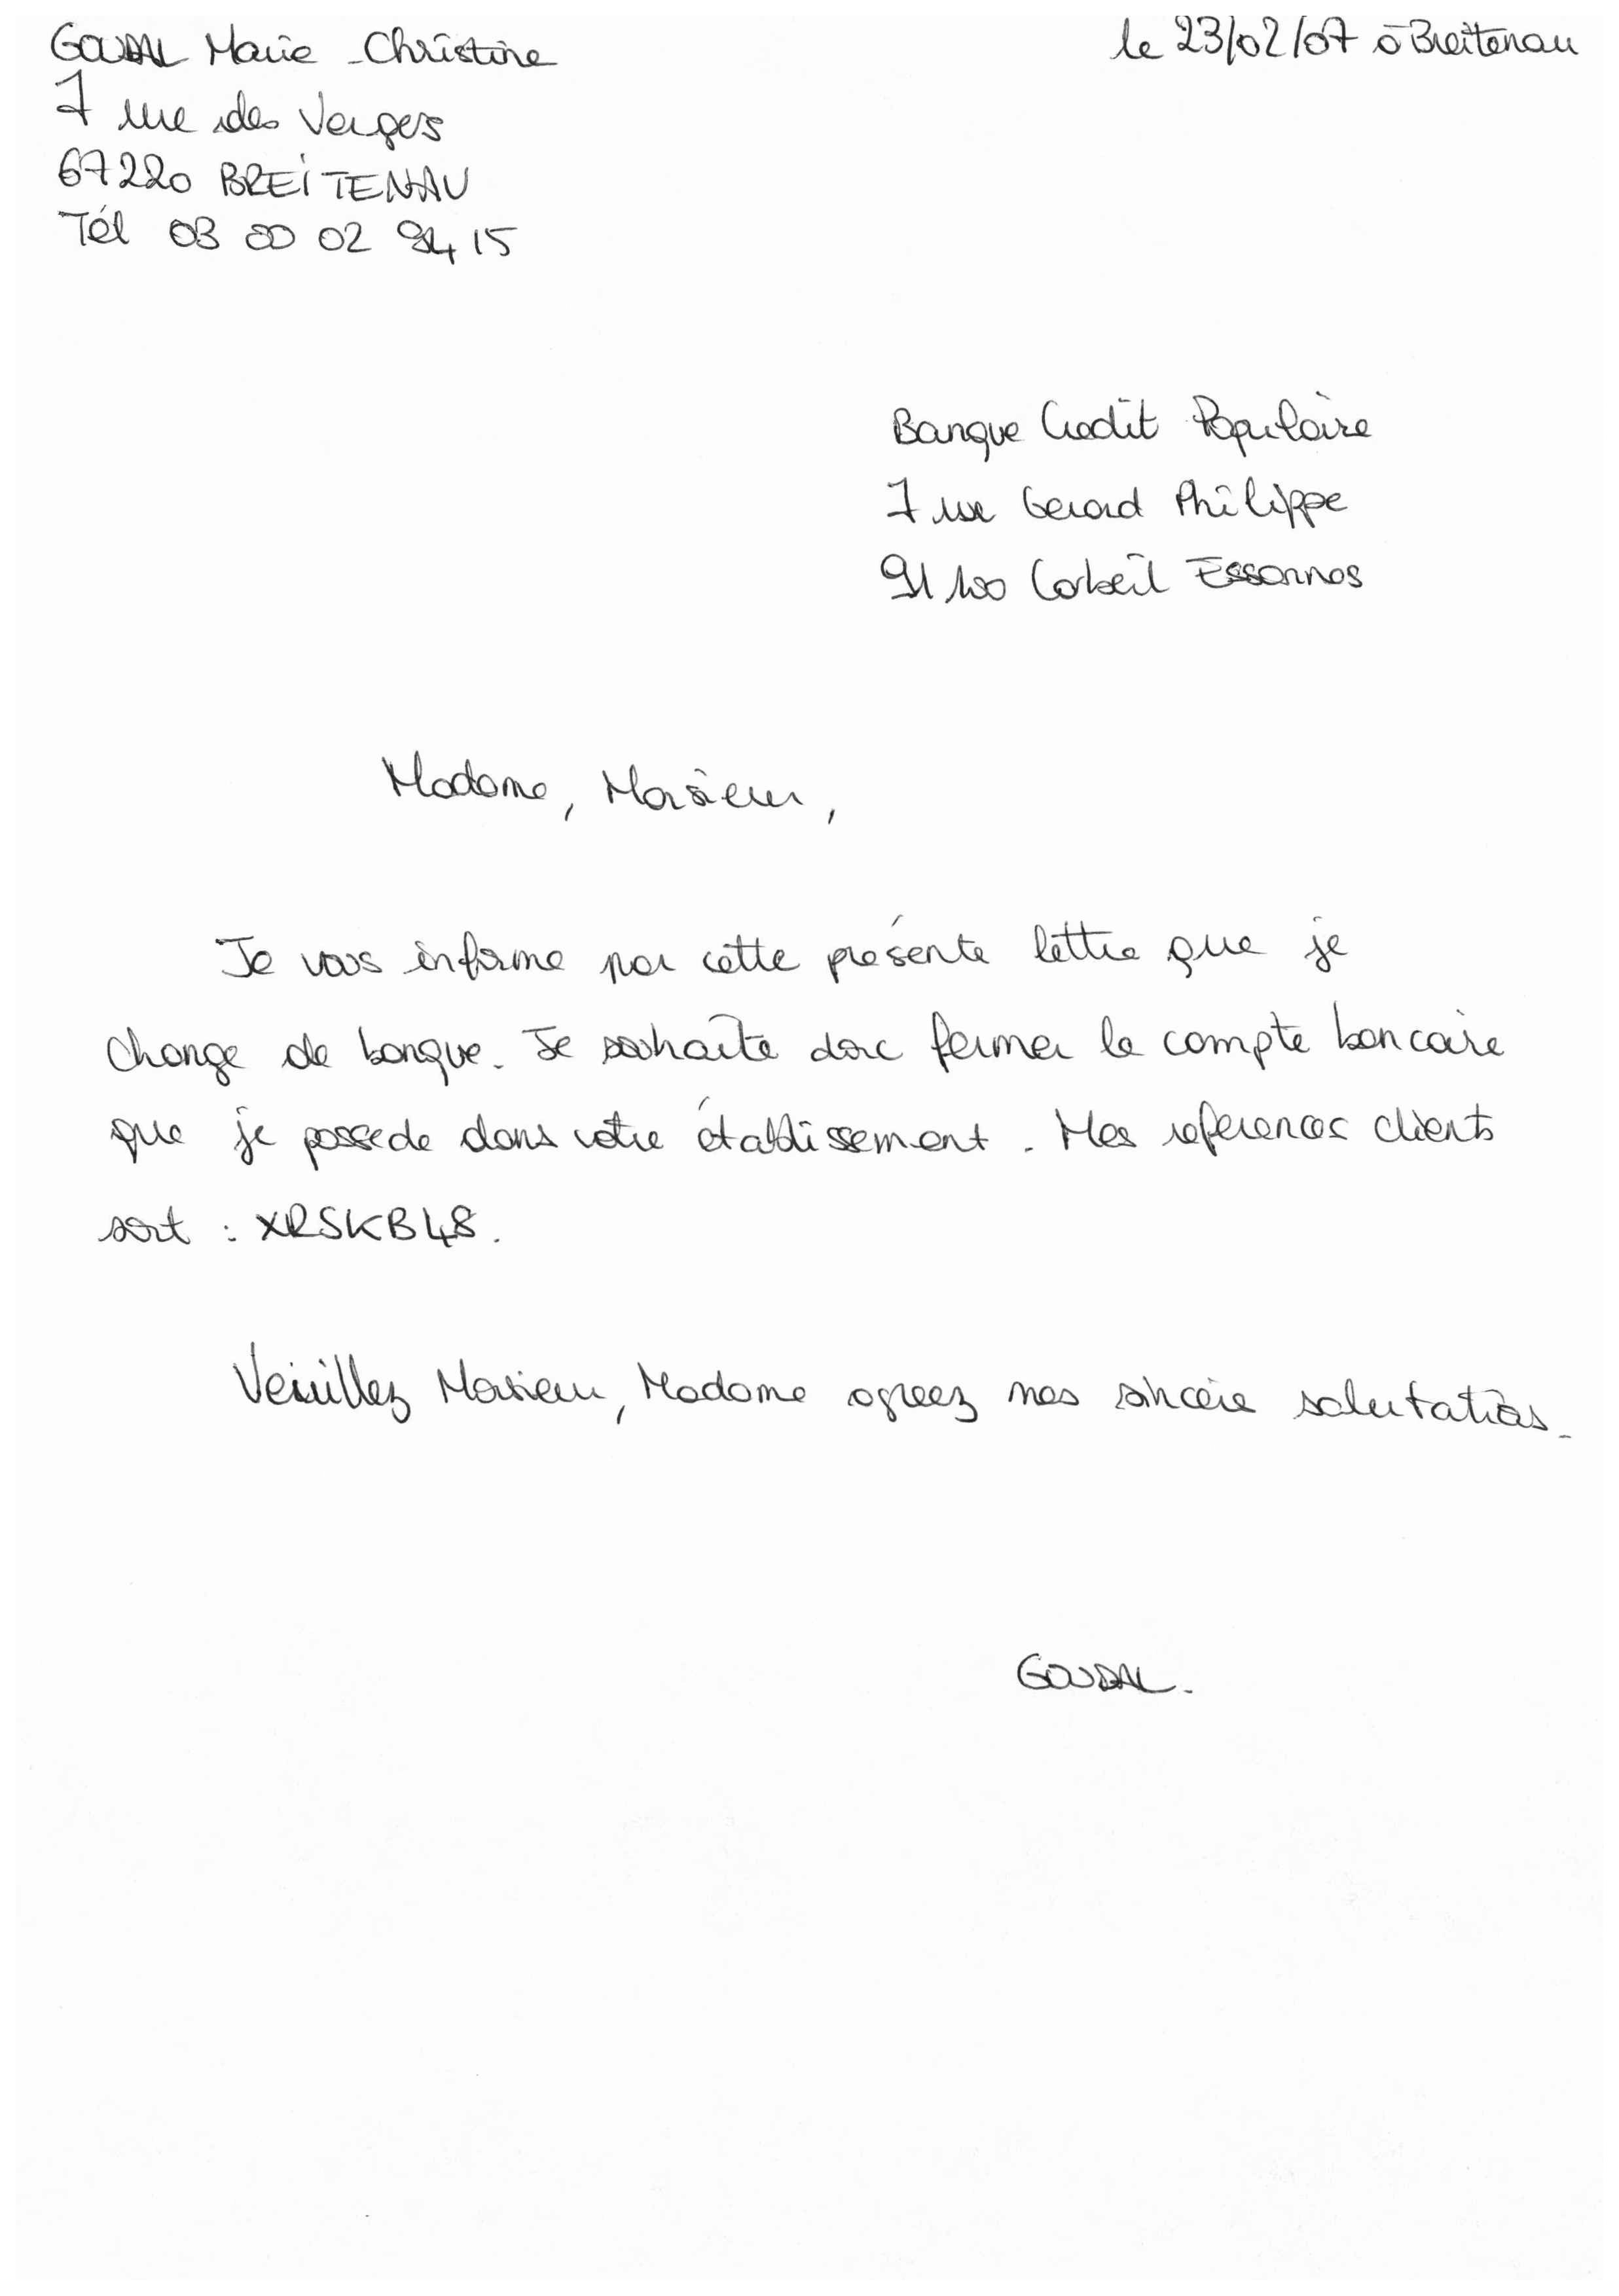 GOUDAL Marie-Christine
le 23/02/07 à Breitenau
7 rue des Vergers
67220 BREITENAU
Tél 03 80 02 94 15
Banque Credit Populaire
7 rue Gerard Philippe
91100 Corbeil Essonnes
Madame, Monsieur,
Je vous informe par cette présente lettre que je
change de banque. Je souhaite donc fermer le compte bancaire
que je possede dans votre établissement. Mes references clients
sont : XRSKB48.
Veuillez Monsieur, Madame agreez mes sincère salutations.
GOUDAL.